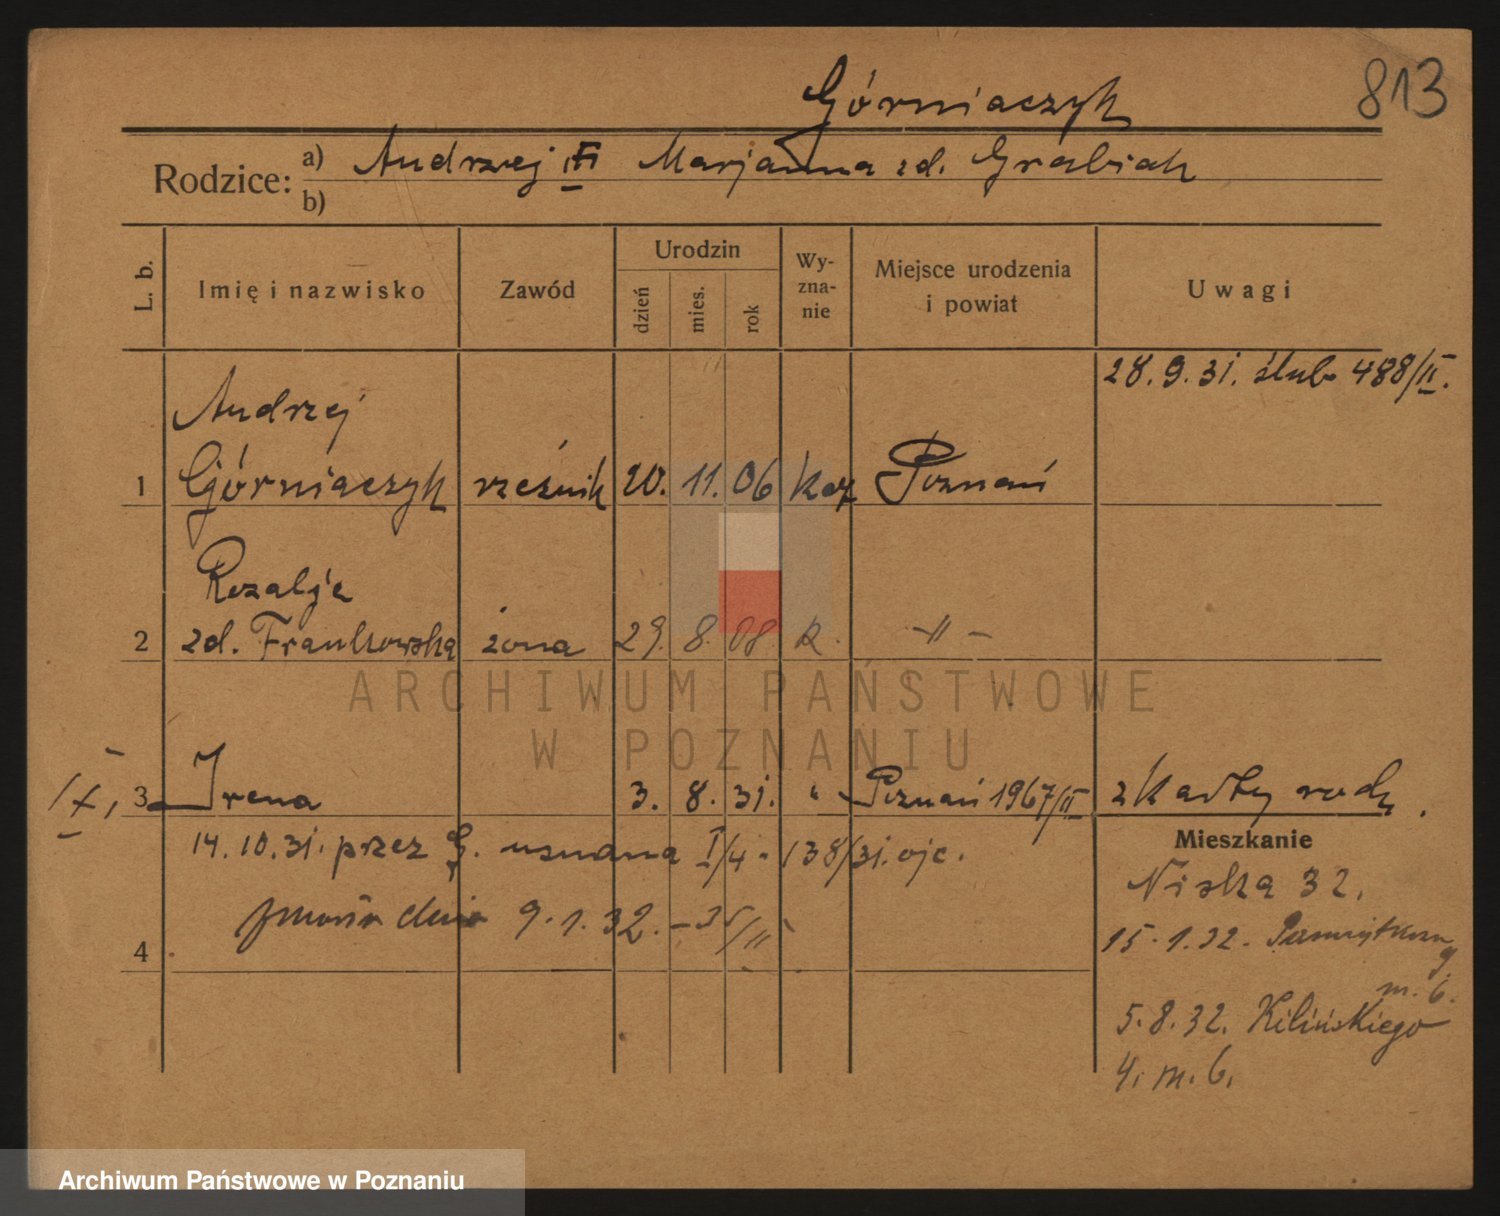 Górniaczyk
813
Rodzice:
a) Andrzej Marjanna zd. Grabiak
b)
L. b.
Imię i nazwisko
Zawód
Urodzin
dzień
mies.
rok
Wy-
zna-
nie
Miejsce urodzenia
i powiat
Uwagi
28.9.31. ślub 488/II.
Andrzej
1 Górniaczyk rzeźnik 20. 11. 06 kat Poznań
Rozalja
2 zd. Frankowska żona 29. 8. 08. k. -"-
3 Irena 3. 8. 31. " Poznań 1967/II z karty rodz.
14.10.31. przez G. uznana I/4 - 138/31. ojc.
zmarła dnia 9.1.32. -35/II
4
Mieszkanie
Niska 32.
15.1.32.
9
m. 6.
5.8.32. Kilińskiego
4. m. 6.
ARCHIWUM PAŃSTWOWE
W POZNANIU
Archiwum Państwowe w Poznaniu